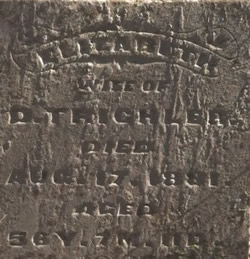 ELIZABETH
WIFE OF
D. TRICHLER
DIED
AUG. 17, 1881
AGED
36 Y. 7 M. 11 D.